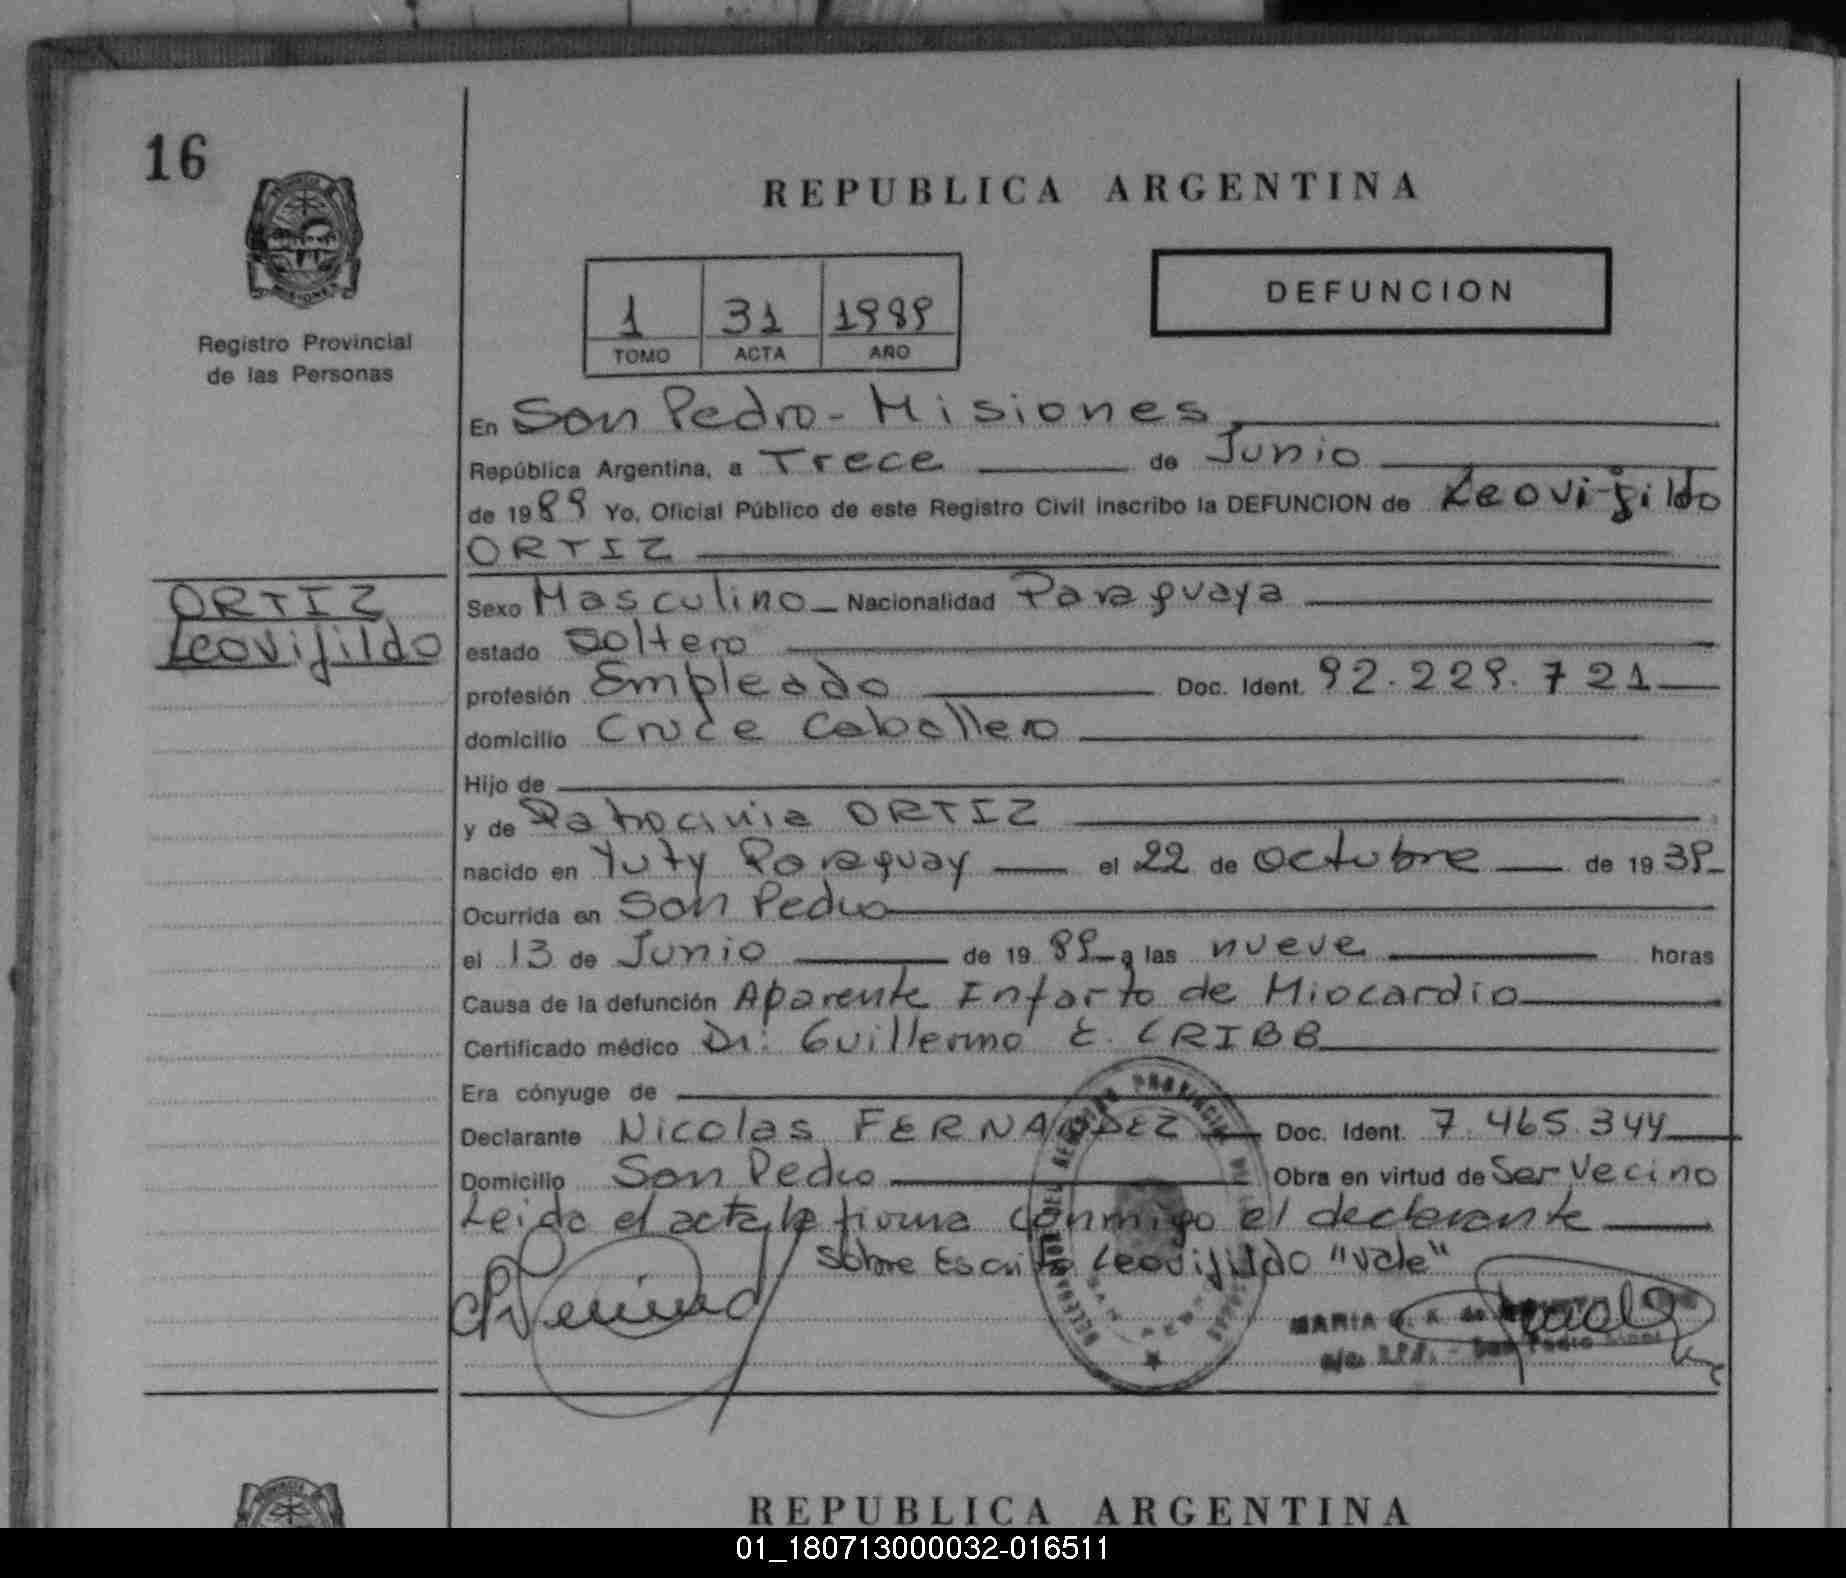 16
REPUBLICA ARGENTINA
1 31 1989
TOMO ACTA AÑO
DEFUNCION
Registro Provincial
de las Personas
En San Pedro - Misiones
República Argentina, a Trece de Junio
de 1989 Yo, Oficial Público de este Registro Civil inscribo la DEFUNCION de Leovigildo
ORTIZ
ORTIZ
Leovijildo
Sexo Masculino Nacionalidad Paraguaya
estado Soltero
profesión Empleado Doc. Ident. 92.229.721
domicilio Cruce Caballero
Hijo de
y de Patrocinia ORTIZ
nacido en Yuty Paraguay el 22 de octubre de 1939
Ocurrida en San Pedro
el 13 de Junio de 1989 a las nueve horas
Causa de la defunción Aparente Infarto de Miocardio
Certificado médico Dr. Guillermo E. CRIBB
Era cónyuge de
Declarante Nicolas FERNANDEZ Doc. Ident. 7.465.344
Domicilio San Pedro Obra en virtud de Ser Vecino
Leida el acta la firma conmigo el declarante
Sobre Escrito Leovijildo "Vale"
MARIA
San Pedro
REPUBLICA ARGENTINA
01_180713000032-016511